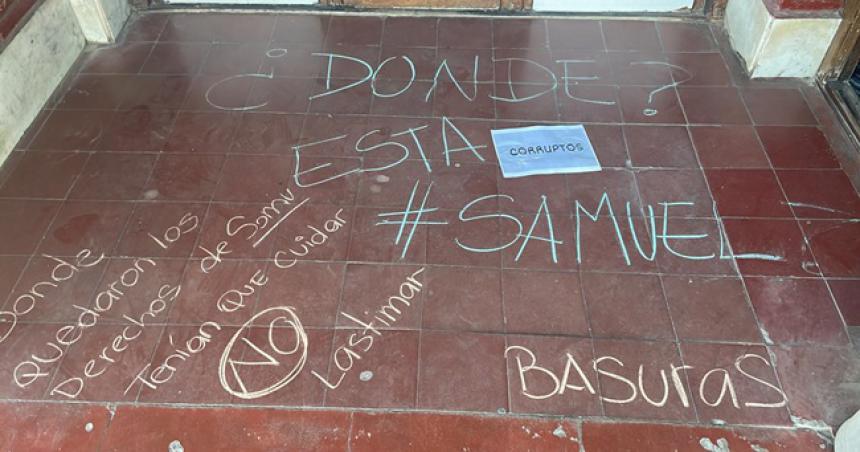 ¿DONDE?
ESTA
CORRUPTOS
#SAMUEL
Donde
quedaron los
Derechos de Samu
Tenían QUE cuidar
NO Lastimar
BASuraS